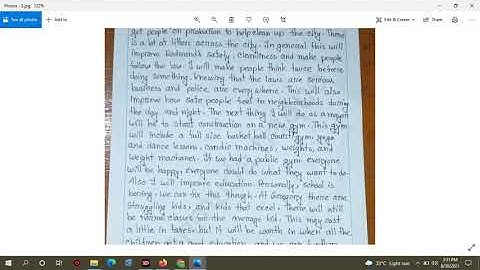 Photos - 3.jpg 122%
See all photos
Edit & Create
Share
get people on production to help clean up the city. There
is a lot of litters across the city. In general this will
improve Redmond's safety, cleanliness and make people
follow the law. I will make people think twice before
doing something. Knowing that the laws are serious
business and police are everywhere. This will also
improve how safe people feel in neighborhoods during
the day and night. The next thing I will do as a mayor
will be to start construction on a new gym. This gym
will include a full size basket ball court, gym, yoga
and dance lessons, cardio machines, weights, and
weight machines. If we had a public gym everyone
will be happy, everyone could do what they want to do.
Also I will improve education. Personally, school is
boring, we can fix this though. At Gregory there are
struggling kids, and kids that excel. There will still
be normal classes for the average kid. This may cost
a little in taxes, but it will be worth in when all the
children get a good education and we can
33°C Light rain
2:31 PM
8/30/2021